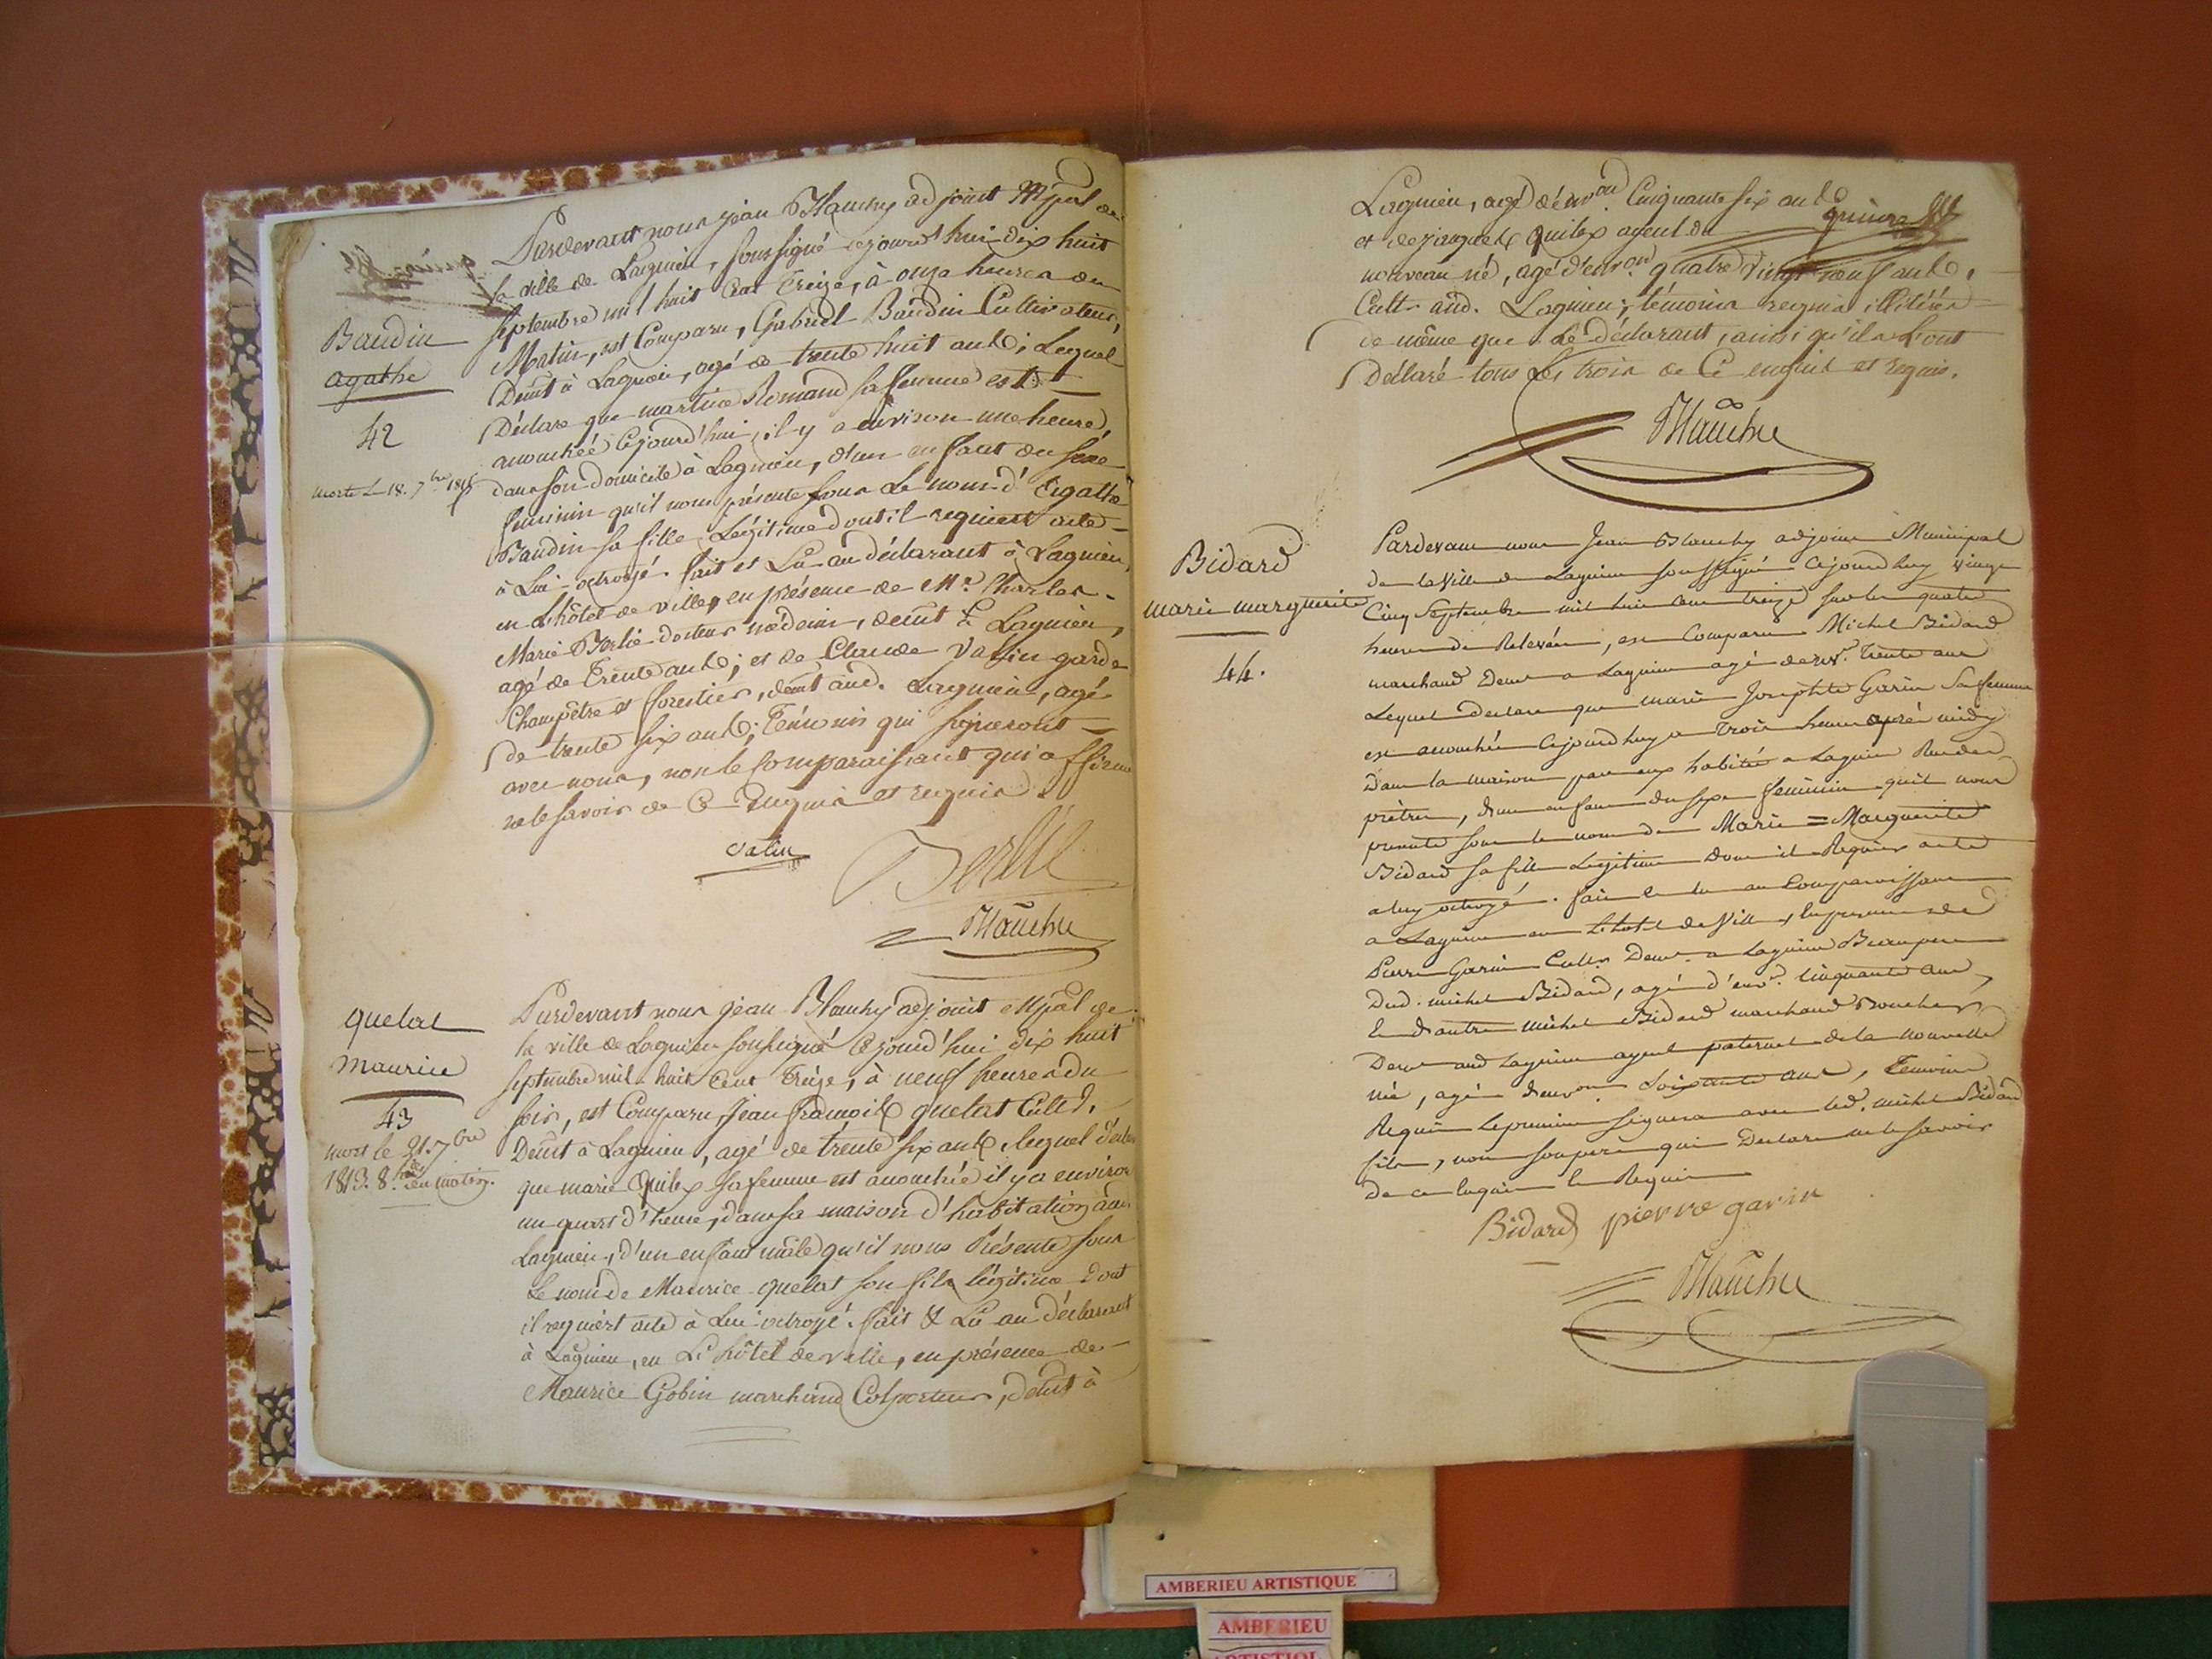 Baudin
agathe
42
morte le 18. 7bre 1815
Pardevant nous jean Blanchy adjoint Mpal de
la ville de Lagnieu, soussigné cejourd'hui dix huit
septembre mil huit Cent treize, à onze heures du
Matin, est Comparu, Gabriel Baudin Cultivateur,
Demt à Lagnieu, agé de trente huit ans; Lequel
Déclare que martine Romand sa femme est
accouchée Cejourd'hui, il y a environ une heure,
dans son domicile à Lagnieu, d'un enfant du sexe
féminin qu'il nous présente sous Le nom d'Agathe
Baudin sa fille Légitime dont il requiert acte
à Lui octroyé. fait et Lu au déclarant à Lagnieu,
en L'hôtel de ville, en présence de Mr. Charles
Marie Berlié docteur médecin, demt à Lagnieu,
agé de Trente ans; et de Claude Vallin garde
Champêtre et forestier, demt aud. Lagnieu, agé
de trente six ans; Témoins qui signeront
avec nous, non le Comparaissant qui affirme
ne le savoir de Ce Enquis et requis.
Valin
Berlié
Blanchy
quelat
Maurice
43
mort le 21. 7bre
1813. 8. h. du matin.
Pardevant nous jean Blanchy adjoint Mpal de
la ville de Lagnieu soussigné Cejourd'hui dix huit
septembre mil huit Cent Treize, à neuf heures du
soir, est Comparu, Jean françois quelat Cultr.
Demt à Lagnieu, agé de trente six ans, lequel déclare
que marie Quilex sa femme est accouchée il y a environ
un quart d'heure, dans sa maison d'habitation aud.
Lagnieu, d'un enfant mâle qu'il nous Présente sous
Le nom de Maurice quelat son fils légitime dont
il requiert acte à Lui octroyé. fait & Lu au déclarant
à Lagnieu, en L'hôtel de ville, en présence de
Maurice Gobin marchand Colporteur, demt à
Lagnieu, agé d'environ Cinquante six ans
et de jacques Quilex ayeul du
nouveau né, agé d'environ quatre vingt neuf ans,
Cultr. aud. Lagnieu; témoins requis illitérés
de même que Le déclarant, ainsi qu'ils L'ont
Déclaré tous Les trois de Ce enquis et requis.
Blanchy
Bidard
marie marguerite
44.
Pardevant nous Jean Blanchy adjoint Municipal
de la Ville de Lagnieu soussigné Cejourd'huy vingt
Cinq Septembre mil huit cent treize sur les quatre
heures de Relevée, est Comparu Michel Bidard
marchand Demt a Lagnieu agé d'env. trente ans
Lequel declare que marie Josephte Garin Sa femme
est accouchée Cejourd'huy a trois heures après midy
Dans la maison par eux habitée a Lagnieu Rue des
prêtres, d'un enfant du sexe féminin qu'il nous
presente sous le nom de Marie = Marguerite
Bidard sa fille Legitime dont il Requiert acte
a luy octroyé. fait et lu au Comparoissant
a Lagnieu en L'hotel de Ville, En presence de
Pierre Garin Cultr. Demt. a Lagnieu Beaupere
Dud. michel Bidard, agé d'env. Cinquante ans,
Et d'autre michel Bidard marchand Boucher
Demt aud Lagnieu ayeul paternel de la nouvelle
née, agé d'environ Soixante ans, Temoins
Requis Le premier signera avec led. michel Bidard
fils, non son pere qui Declare ne le savoir
de ce Enquis Et Requis
Bidard pierre garin
Blanchy
AMBERIEU ARTISTIQUE
AMBERIEU